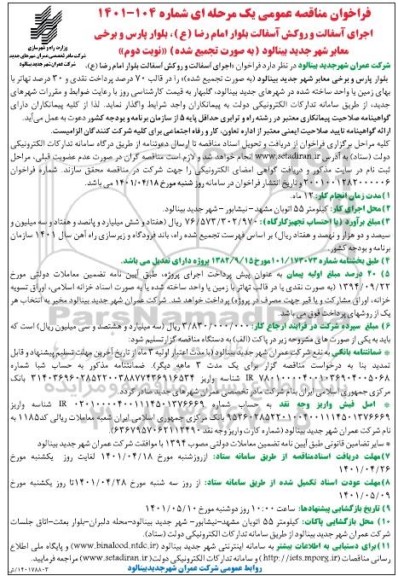 فراخوان مناقصه عمومی یک مرحله ای شماره ۱۰۴-۱۴۰۱
اجرای آسفالت و روکش آسفالت بلوار امام رضا (ع)، بلوار پارس و برخی
معابر شهر جدید بینالود ( به صورت تجمیع شده ) «نوبت دوم»
وزارت راه و شهرسازی
شرکت عمران شهرجدید بینالود در نظر دارد فراخوان «اجرای آسفالت و روکش آسفالت بلوار امام رضا (ع)،
بلوار پارس و برخی معابر شهر جدید بینالود (به صورت تجمیع شده)» را در قالب ۷۰ درصد پرداخت نقدی و ۳۰ درصد تهاتر با
بهای زمین یا واحد ساخته شده در شهرجدید بینالود، گلبهار به قیمت کارشناسی روز با رعایت ضوابط و مقررات شهرهای
جدید، از طریق سامانه تدارکات الکترونیکی دولت به پیمانکاران واجد شرایط واگذار نماید. لذا از کلیه پیمانکاران دارای
گواهینامه صلاحیت پیمانکاری معتبر در رشته راه و ترابری حداقل پایه ۵ از سازمان برنامه و بودجه کشور دعوت به عمل می‌آید.
ارائه گواهینامه تایید صلاحیت ایمنی معتبر از اداره تعاون، کار و رفاه اجتماعی برای کلیه شرکت کنندگان الزامیست.
کلیه مراحل برگزاری فراخوان از دریافت و تحویل اسناد مناقصه تا ارسال دعوتنامه از طریق درگاه سامانه تدارکات الکترونیکی
دولت (ستاد) به آدرس www.setadiran.ir انجام خواهد شد و لازم است مناقصه گران در صورت عدم عضویت قبلی، مراحل
ثبت نام در سایت مذکور و دریافت گواهی امضای الکترونیکی را جهت شرکت در مناقصه محقق سازند. شماره فراخوان
و تاریخ انتشار فراخوان در سامانه روز شنبه مورخ ۱۴۰۱/۰۴/۱۸ می باشد.
۱) مدت زمان انجام کار: ۱۲ ماه.
۲) محل اجرای کار: کیلومتر ۵۵ اتوبان مشهد- نیشابور – شهر جدید بینالود.
۳) مبلغ برآورد (با احتساب تجهیزکارگاه): ۷۶,۵۷۳,۳۰۲,۹۷۰ ریال (هفتاد و شش میلیارد و پانصد و هفتاد و سه میلیون و
سیصد و دو هزار و نهصد و هفتاد ریال) بر اساس فهرست تجمیع شده راه، باند فرودگاه و زیرسازی راه آهن سال ۱۴۰۱ سازمان
برنامه و بودجه کشور.
۴) طبق بخشنامه شماره ۱۰۱/۱۷۳۰۷۳ مورخ ۱۳۸۲/۰۹/۱۵ پروژه دارای تعدیل می باشد.
۵) ۲۰ درصد مبلغ اولیه پیمان به عنوان پیش پرداخت اجرای پروژه، طبق آیین نامه تضمین معاملات دولتی مورخ
۱۳۹۴/۰۹/۲۲ (به صورت نقدی یا در قالب تهاتر با زمین یا واحد ساخته شده یا به صورت اسناد خزانه اسلامی، اوراق تسویه
خزانه، اوراق مشارکت و یا قیر جهت مصرف در پروژه) پرداخت خواهد شد. شرکت عمران شهر جدید بینالود مخیر به انتخاب هر
یک از روشهای پرداختی فوق می باشد.
۶) مبلغ سپرده شرکت در فرایند ارجاع کار: ۳/۸۳۰/۰۰۰/۰۰۰ ریال (سه میلیارد و هشتصد و سی میلیون ریال) است که
باید به یکی از صورت های مشروحه زیر در پاکت (الف) به دستگاه مناقصه گزار تسلیم شود:
* ضمانتنامه بانکی به نفع شرکت عمران شهر جدید بینالود (با مدت اعتبار اولیه ۳ ماه از تاریخ آخرین مهلت تسلیم پیشنهاد و قابل
تمدید بنا به درخواست مناقصه گزار برای یک مدت ۳ ماهه دیگر).
* سایر تضامین قانونی طبق آیین نامه تضمین معاملات دولتی مصوب ۱۳۹۴ با موافقت شرکت عمران شهر جدید بینالود.
۷) مهلت دریافت اسناد مناقصه از طریق سامانه ستاد: از روز شنبه مورخ ۱۴۰۱/۰۴/۱۸ لغایت روز یکشنبه مورخ
۱۴۰۱/۰۴/۲۶
۸) مهلت عودت اسناد تکمیل شده از طریق سامانه ستاد: از روز سه شنبه مورخ ۱۴۰۱/۰۴/۲۸ تا روز یکشنبه مورخ
۱۴۰۱/۰۵/۰۹
۹) تاریخ بازگشایی پیشنهادها: ساعت ۱۰:۰۰ روز دوشنبه مورخ ۱۴۰۱/۰۵/۱۰
۱۰) محل بازگشایی پاکات: کیلومتر ۵۵ اتوبان مشهد-نیشابور- شهر جدید بینالود-محله دلبران-بلوار بعثت-اتاق جلسات
شرکت عمران شهر جدید بینالود از طریق سامانه تدارکات الکترونیکی دولت (ستاد).
۱۱) برای دستیابی به اطلاعات بیشتر به سایت اینترنتی شهر جدید بینالود (www.binalood.ntdc.ir) و پایگاه ملی اطلاع
رسانی مناقصات (http://iets.mporg.ir) و سامانه تدارکات الکترونیکی دولت (www.setadiran.ir) مراجعه فرمایید.
روابط عمومی شرکت عمران شهرجدید بینالود